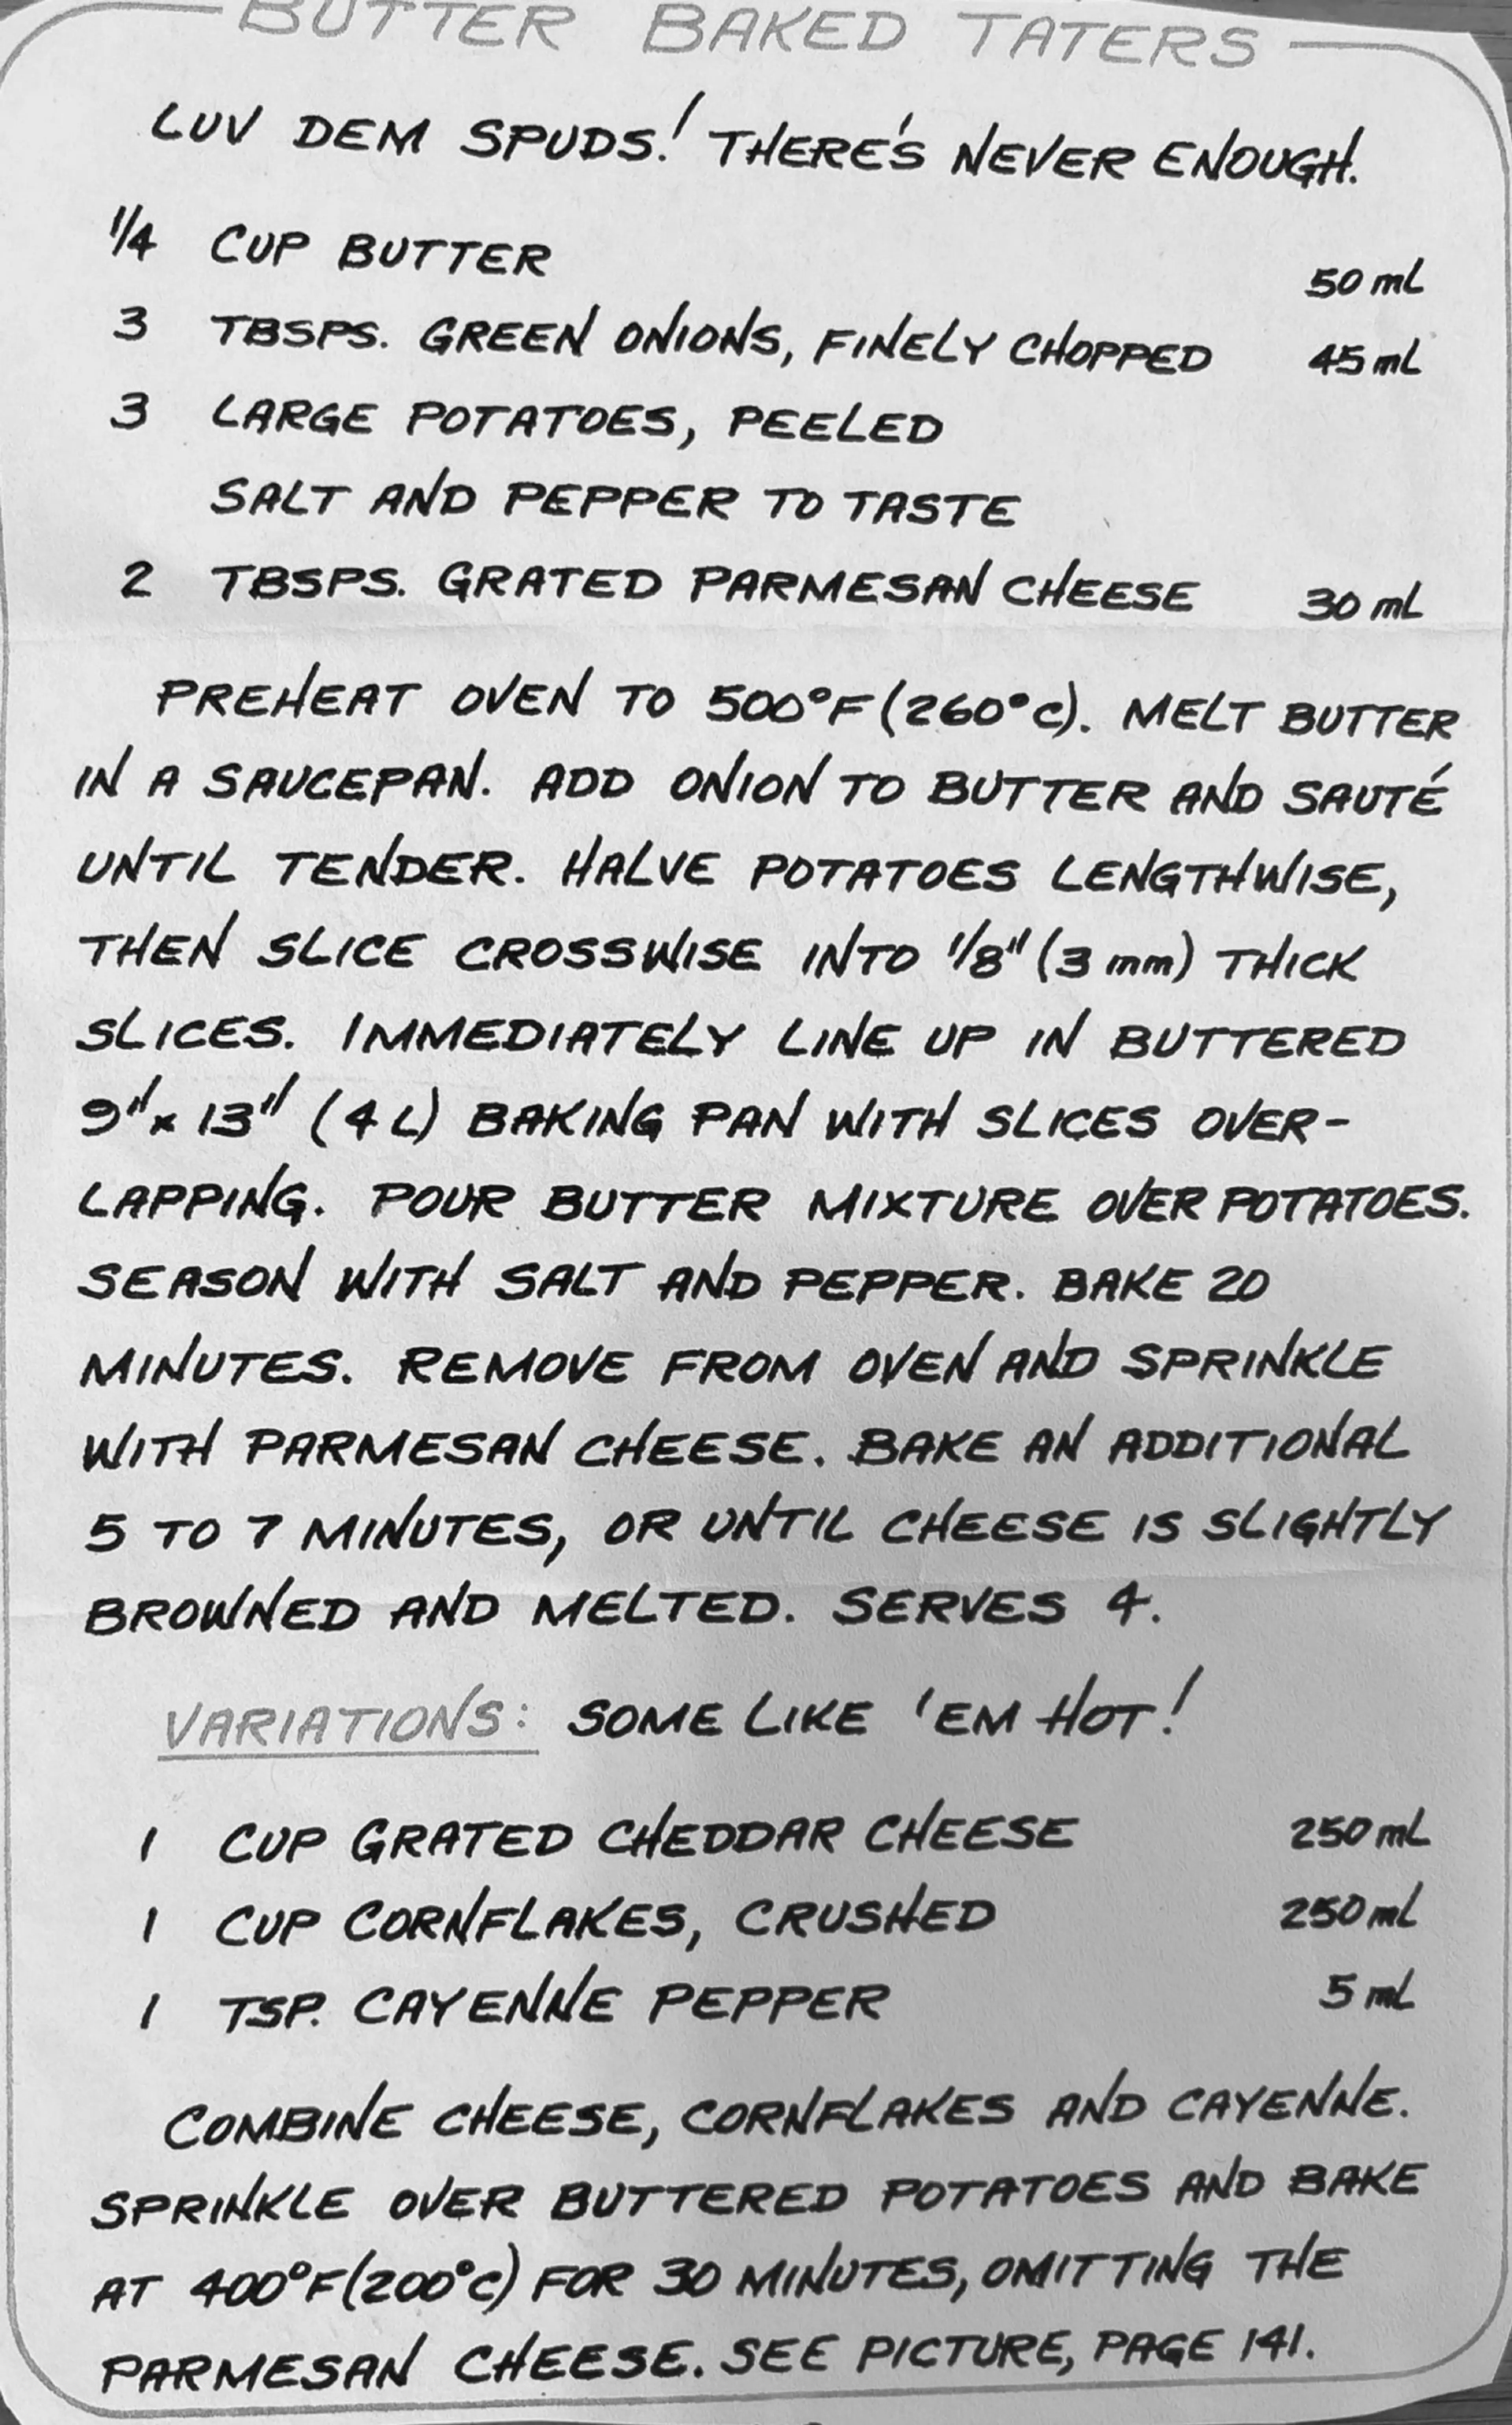 BUTTER BAKED TATERS
LUV DEM SPUDS! THERE'S NEVER ENOUGH.
1/4 CUP BUTTER 50 mL
3 TBSPS. GREEN ONIONS, FINELY CHOPPED 45 mL
3 LARGE POTATOES, PEELED
SALT AND PEPPER TO TASTE
2 TBSPS. GRATED PARMESAN CHEESE 30 mL
PREHEAT OVEN TO 500°F (260°C). MELT BUTTER
IN A SAUCEPAN. ADD ONION TO BUTTER AND SAUTÉ
UNTIL TENDER. HALVE POTATOES LENGTHWISE,
THEN SLICE CROSSWISE INTO 1/8" (3 mm) THICK
SLICES. IMMEDIATELY LINE UP IN BUTTERED
9" x 13" (4 L) BAKING PAN WITH SLICES OVER-
LAPPING. POUR BUTTER MIXTURE OVER POTATOES.
SEASON WITH SALT AND PEPPER. BAKE 20
MINUTES. REMOVE FROM OVEN AND SPRINKLE
WITH PARMESAN CHEESE. BAKE AN ADDITIONAL
5 TO 7 MINUTES, OR UNTIL CHEESE IS SLIGHTLY
BROWNED AND MELTED. SERVES 4.
VARIATIONS: SOME LIKE 'EM HOT!
1 CUP GRATED CHEDDAR CHEESE 250 mL
1 CUP CORNFLAKES, CRUSHED 250 mL
1 TSP. CAYENNE PEPPER 5 mL
COMBINE CHEESE, CORNFLAKES AND CAYENNE.
SPRINKLE OVER BUTTERED POTATOES AND BAKE
AT 400°F (200°C) FOR 30 MINUTES, OMITTING THE
PARMESAN CHEESE. SEE PICTURE, PAGE 141.